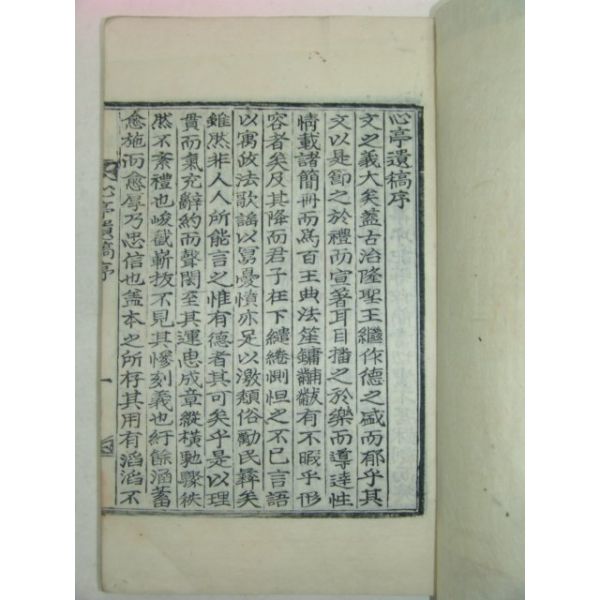 心亭遺稿序
文之義大矣蓋古治隆聖王繼作德之盛而郁乎其
文以是節之於禮而宣著耳目播之於樂而導達性
情載諸簡冊而爲百王典法笙鏞黼黻有不暇乎形
容者矣及其降而君子在下繾綣惻怛之不已言語
以寓政法歌謠以寫憂憤亦足以激頹俗勵民彝矣
雖然非人人所能言之惟有德者其可矣乎是以理
貫而氣充辭約而聲閎至其運思成章縱橫馳驟秩
然不紊禮也峻截嶄拔不見其慘刻義也紆餘涵蓄
愈施而愈厚乃忠信也蓋本之所存其用有滔滔不
心亭遺稿序
一